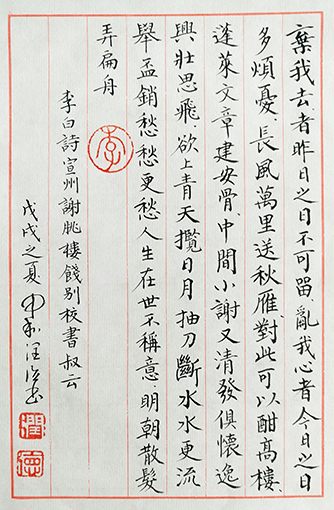 棄我去者昨日之日不可留亂我心者今日之日
多煩憂長風萬里送秋雁對此可以酣高樓
蓬萊文章建安骨中間小謝又清發俱懷逸
興壯思飛欲上青天攬日月抽刀斷水水更流
舉盃銷愁愁更愁人生在世不稱意明朝散髮
弄扁舟
李
李白詩宣州謝朓樓餞別校書叔云
戊戌之夏
潤
德